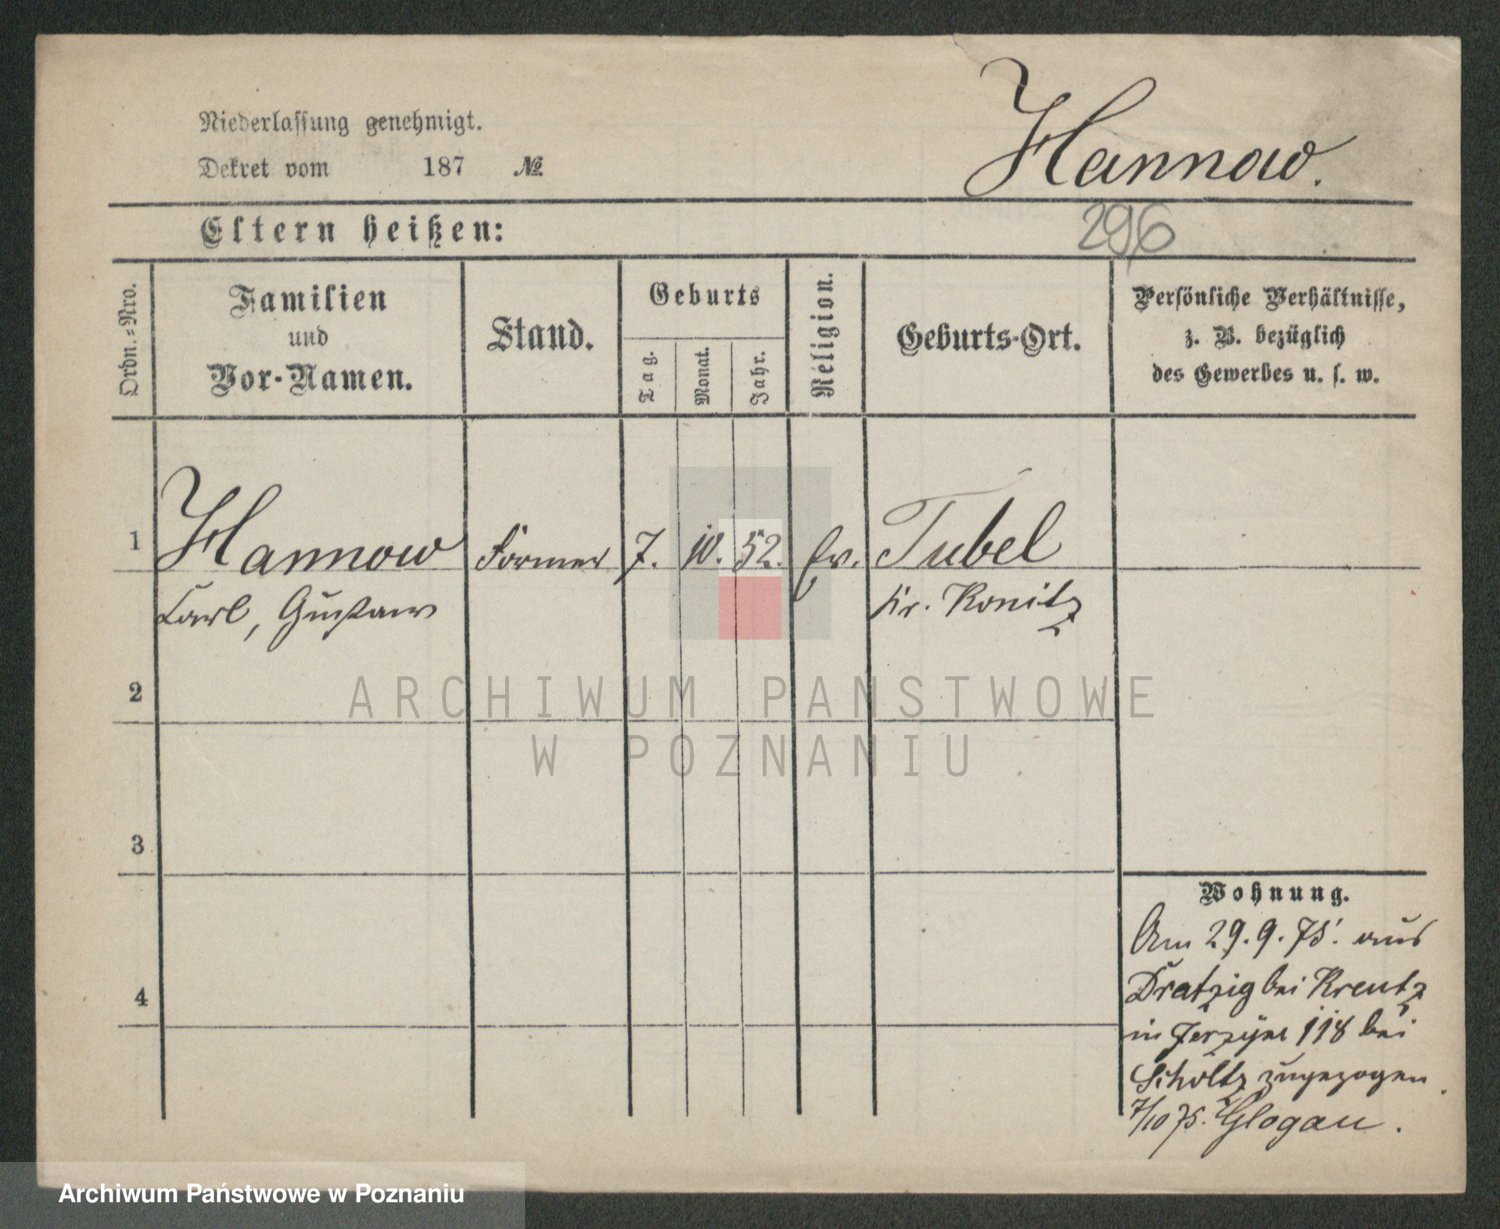 Niederlassung genehmigt.
Dekret vom 187 №
Hannow.
296
Eltern heißen:
Ordn.-Nro.
Familien
und
Vor-Namen.
Stand.
Geburts
Tag.
Monat.
Jahr.
Religion.
Geburts-Ort.
Persönliche Verhältnisse,
z. B. bezüglich
des Gewerbes u. s. w.
1 Hannow Former 7. 10. 52. Ev. Tubel
Carl, Gustav Kr. Konitz
2
ARCHIWUM PAŃSTWOWE
W POZNANIU
3
Wohnung.
Am 29.9.75. aus
Dratzig bei Kreutz
4
in Jerzyce 118 bei
Scholtz zugezogen.
7/10 75. Glogau.
Archiwum Państwowe w Poznaniu